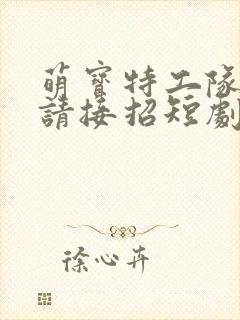 萌寶特工隊
請接招短劇
徐心卉